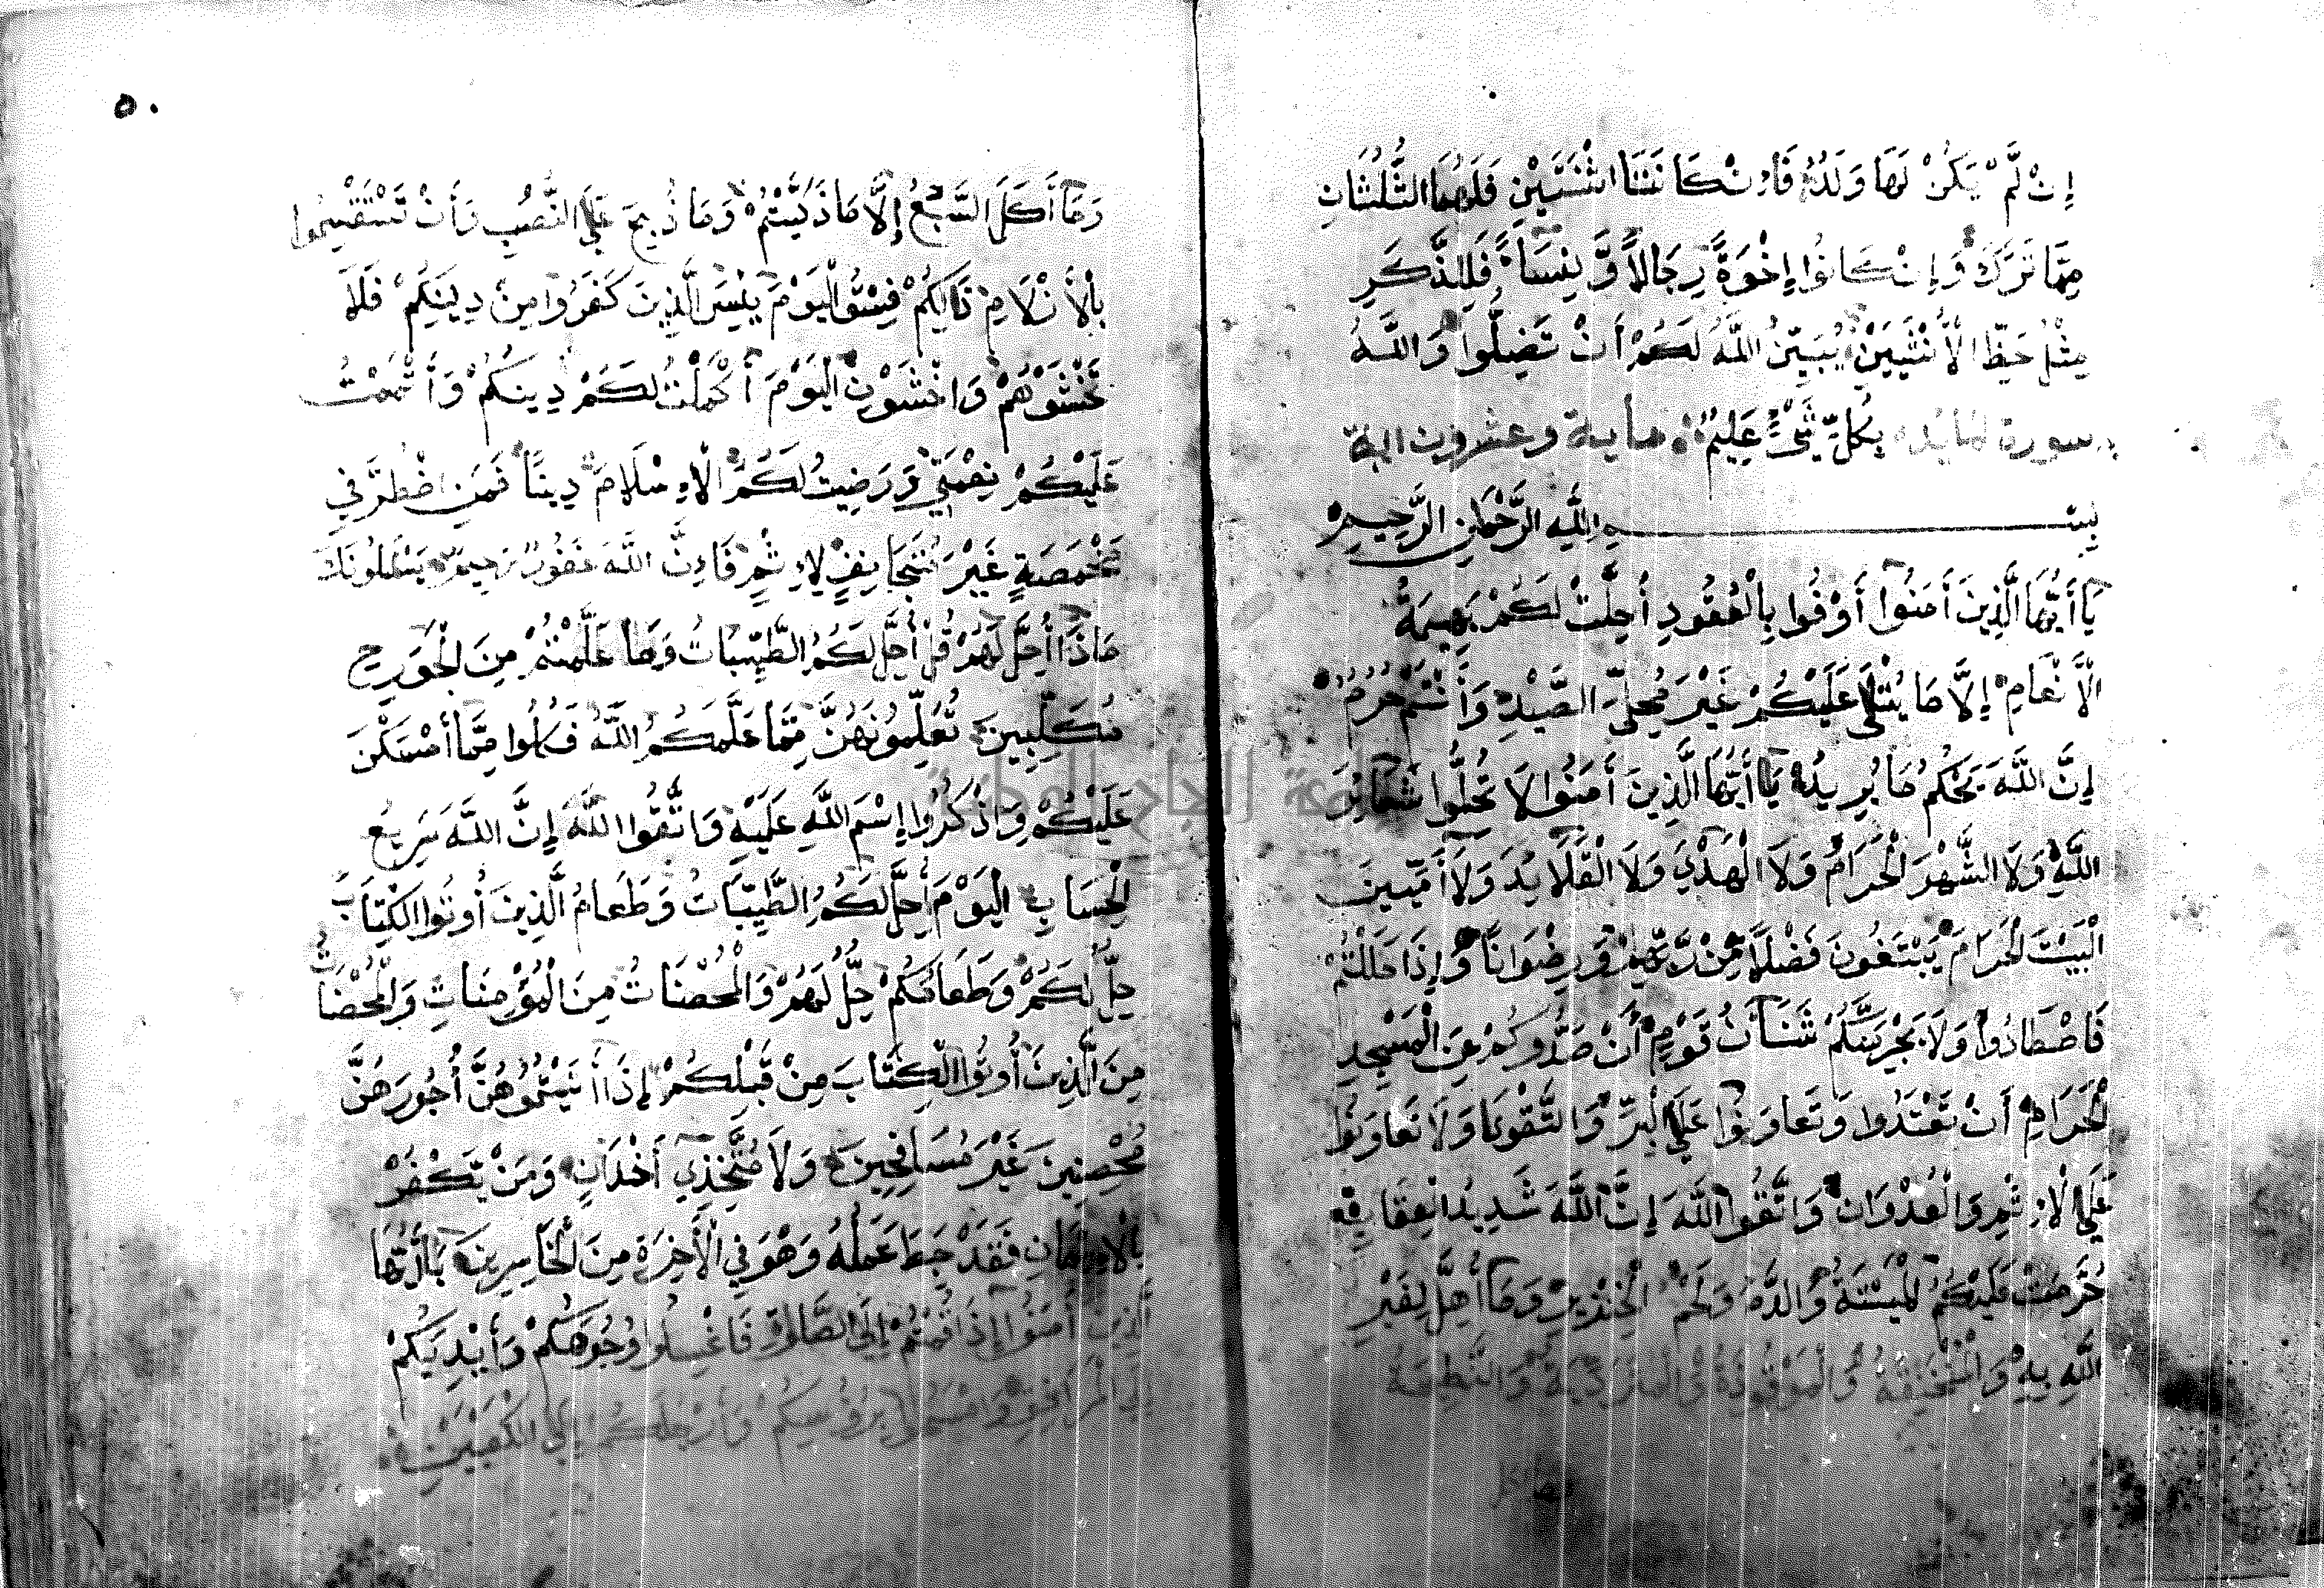 إِن لَّمْ يَكُنْ لَهَا وَلَدٌ فَإِنْ كَانَتَا اثْنَتَيْنِ فَلَهُمَا الثُّلُثَانِ
مِمَّا تَرَكَ وَإِنْ كَانُوا إِخْوَةً رِجَالًا وَّنِسَاءً فَلِلذَّكَرِ
مِثْلُ حَظِّ الْأُنْثَيَيْنِ يُبَيِّنُ اللَّهُ لَكُمْ أَنْ تَضِلُّوا وَاللَّهُ
سورة المايده بِكُلِّ شَيْءٍ عَلِيمٌ مأية وعشرون اية
بِسْمِ اللَّهِ الرَّحْمَنِ الرَّحِيمِ
يَا أَيُّهَا الَّذِينَ أَمَنُوا أَوْفُوا بِالْعُقُودِ أُحِلَّتْ لَكُمْ بَهِيمَةُ
الْأَنْعَامِ إِلَّا مَا يُتْلَى عَلَيْكُمْ غَيْرَ مُحِلِّي الصَّيْدِ وَأَنْتُمْ حُرُمٌ
إِنَّ اللَّهَ يَحْكُمُ مَا يُرِيدُ يَا أَيُّهَا الَّذِينَ أَمَنُوا لَا تُحِلُّوا شَعَايِرَ
اللَّهِ وَلَا الشَّهْرَ الْحَرَامَ وَلَا الْهَدْيَ وَلَا الْقَلَايِدَ وَلَا أَمِّينَ
الْبَيْتَ الْحَرَامَ يَبْتَغُونَ فَضْلًا مِّنْ رَّبِّهِمْ وَرِضْوَانًا وَإِذَا حَلَلْتُمْ
فَاصْطَادُوا وَلَا يَجْرِمَنَّكُمْ شَنَأَنُ قَوْمٍ أَنْ صَدُّوكُمْ عَنِ الْمَسْجِدِ
الْحَرَامِ أَنْ تَعْتَدُوا وَتَعَاوَنُوا عَلَى الْبِرِّ وَالتَّقْوَى وَلَا تَعَاوَنُوا
عَلَى الْإِثْمِ وَالْعُدْوَانِ وَاتَّقُوا اللَّهَ إِنَّ اللَّهَ شَدِيدُ الْعِقَابِ
حُرِّمَتْ عَلَيْكُمُ الْمَيْتَةُ وَالدَّمُ وَلَحْمُ الْخِنْزِيرِ وَمَا أُهِلَّ لِغَيْرِ
اللَّهِ بِهِ وَالْمُنْخَنِقَةُ وَالْمَوْقُوذَةُ وَالْمُتَرَدِّيَةُ وَالنَّطِيحَةُ
٥٠
وَمَا أَكَلَ السَّبُعُ إِلَّا مَا ذَكَّيْتُمْ وَمَا ذُبِحَ عَلَى النُّصُبِ وَأَنْ تَسْتَقْسِمُوا
بِالْأَزْلَامِ ذَالِكُمْ فِسْقٌ الْيَوْمَ يَئِسَ الَّذِينَ كَفَرُوا مِنْ دِينِكُمْ فَلَا
تَخْشَوْهُمْ وَاخْشَوْنِ الْيَوْمَ أَكْمَلْتُ لَكُمْ دِينَكُمْ وَأَتْمَمْتُ
عَلَيْكُمْ نِعْمَتِي وَرَضِيتُ لَكُمُ الْإِسْلَامَ دِينًا فَمَنِ اضْطُرَّ فِي
مَخْمَصَةٍ غَيْرَ مُتَجَانِفٍ لِإِثْمٍ فَإِنَّ اللَّهَ غَفُورٌ رَحِيمٌ يَسْئَلُونَكَ
مَاذَا أُحِلَّ لَهُمْ قُلْ أُحِلَّ لَكُمُ الطَّيِّبَاتُ وَمَا عَلَّمْتُمْ مِنَ الْجَوَارِحِ
مُكَلِّبِينَ تُعَلِّمُونَهُنَّ مِمَّا عَلَّمَكُمُ اللَّهُ فَكُلُوا مِمَّا أَمْسَكْنَ
عَلَيْكُمْ وَاذْكُرُوا إِسْمَ اللَّهِ عَلَيْهِ وَاتَّقُوا اللَّهَ إِنَّ اللَّهَ سَرِيعُ
الْحِسَابِ الْيَوْمَ أُحِلَّ لَكُمُ الطَّيِّبَاتُ وَطَعَامُ الَّذِينَ أُوتُوا الْكِتَابَ
حِلٌّ لَكُمْ وَطَعَامُكُمْ حِلٌّ لَهُمْ وَالْمُحْصَنَاتُ مِنَ الْمُؤْمِنَاتِ وَالْمُحْصَنَاتُ
مِنَ الَّذِينَ أُوتُوا الْكِتَابَ مِنْ قَبْلِكُمْ إِذَا أَتَيْتُمُوهُنَّ أُجُورَهُنَّ
مُحْصِنِينَ غَيْرَ مُسَافِحِينَ وَلَا مُتَّخِذِي أَخْدَانٍ وَمَنْ يَّكْفُرْ
بِالْإِيمَانِ فَقَدْ حَبِطَ عَمَلُهُ وَهُوَ فِي الْأَخِرَةِ مِنَ الْخَاسِرِينَ يَاأَيُّهَا
الَّذِينَ أَمَنُوا إِذَا قُمْتُمْ إِلَى الصَّلَوةِ فَاغْسِلُوا وُجُوهَكُمْ وَأَيْدِيَكُمْ
إِلَى الْمَرَافِقِ وَامْسَحُوا بِرُءُوسِكُمْ وَأَرْجُلَكُمْ إِلَى الْكَعْبَيْنِ